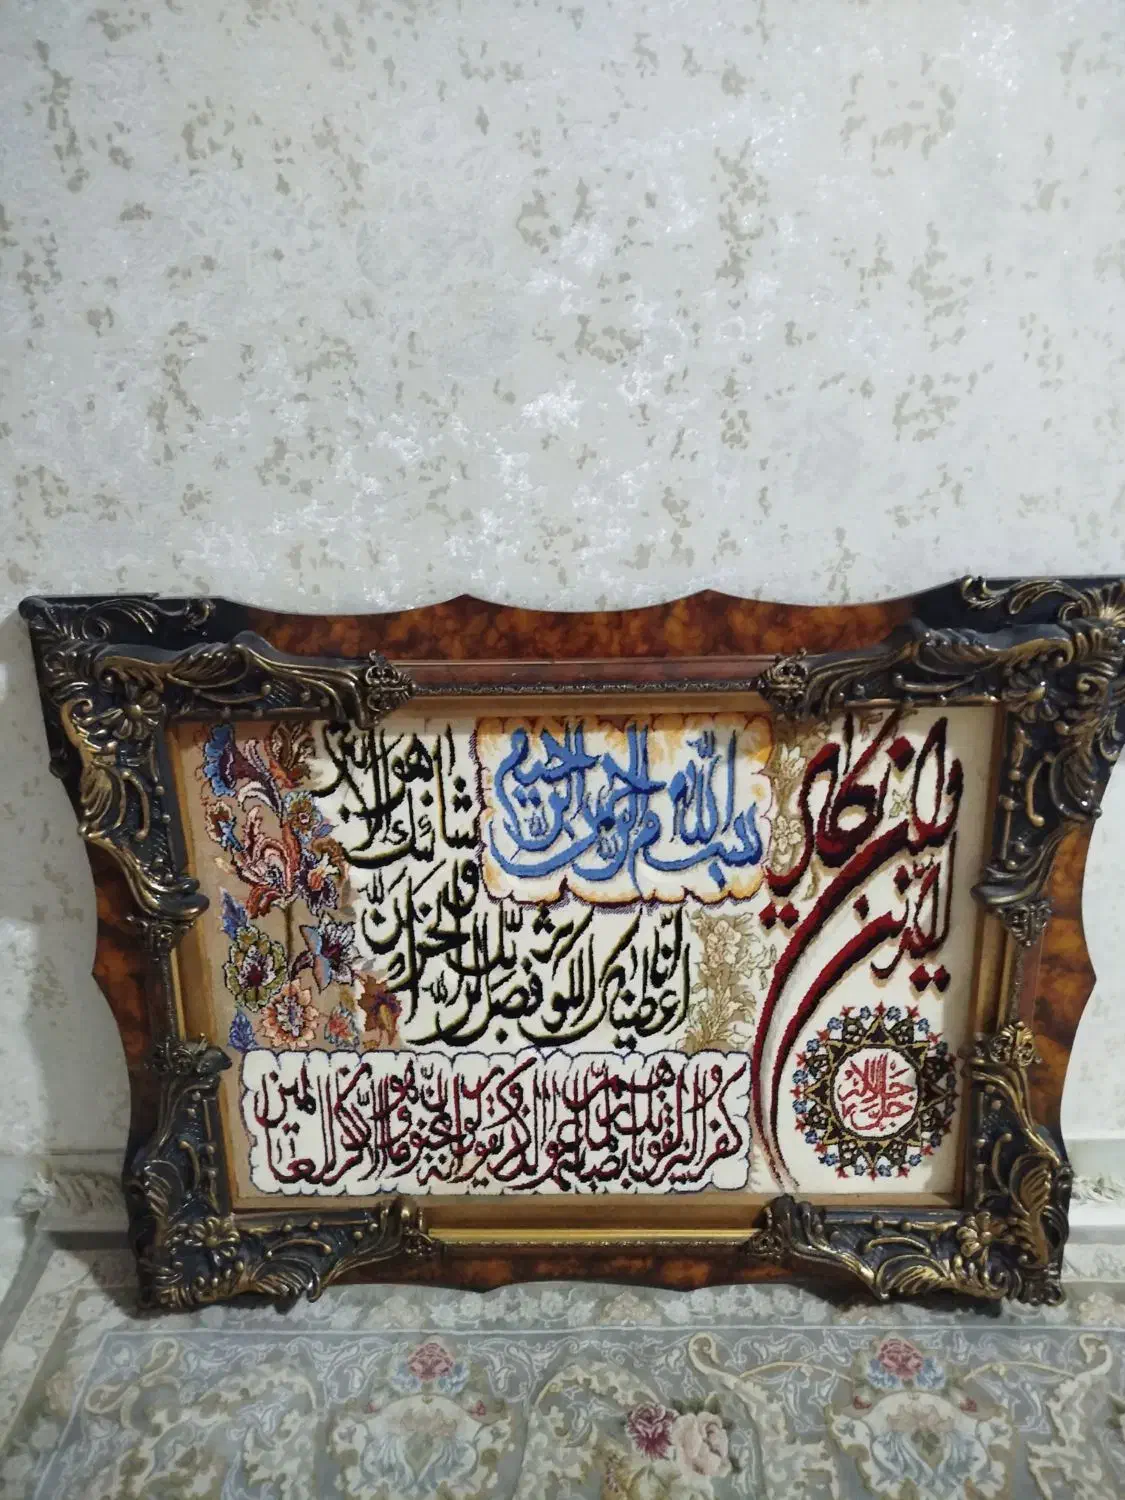 وان یکاد
الذین
بسم الله الرحمن الرحیم
انا اعطیناک الکوثر فصل لربک وانحر ان
شانئک هو الابتر
کفروا لیزلقونک بابصارهم لما سمعوا الذکر و یقولون انه لمجنون وما هو الا ذکر للعالمین
جل جلاله